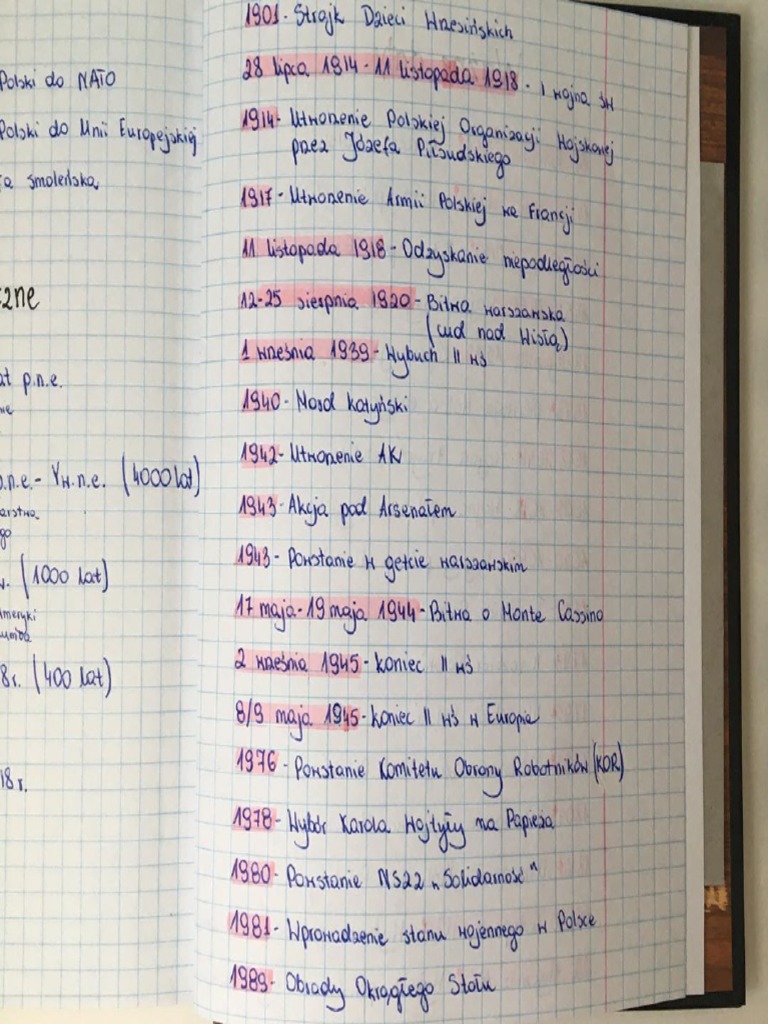 Polski do NATO
Polski do Unii Europejskiej
smoleńska
zne
p.n.e.
p.n.e. - V w. n.e. (4000 lat)
(1000 lat)
8r. (400 lat)
18 r.
1901 - Strajk Dzieci Wrzesińskich
28 lipca 1914 - 11 listopada 1918 - I wojna św
1914 - Utworzenie Polskiej Organizacji Wojskowej
przez Józefa Piłsudskiego
1917 - Utworzenie Armii Polskiej we Francji
11 listopada 1918 - Odzyskanie niepodległości
12-25 sierpnia 1920 - Bitwa warszawska
(cud nad Wisłą)
1 września 1939 - Wybuch II wś
1940 - Mord katyński
1942 - Utworzenie AK
1943 - Akcja pod Arsenałem
1943 - Powstanie w getcie warszawskim
17 maja - 19 maja 1944 - Bitwa o Monte Cassino
2 września 1945 - koniec II wś
8/9 maja 1945 - koniec II wś w Europie
1976 - Powstanie Komitetu Obrony Robotników (KOR)
1978 - Wybór Karola Wojtyły na Papieża
1980 - Powstanie NSZZ „Solidarność"
1981 - Wprowadzenie stanu wojennego w Polsce
1989 - Obrady Okrągłego Stołu